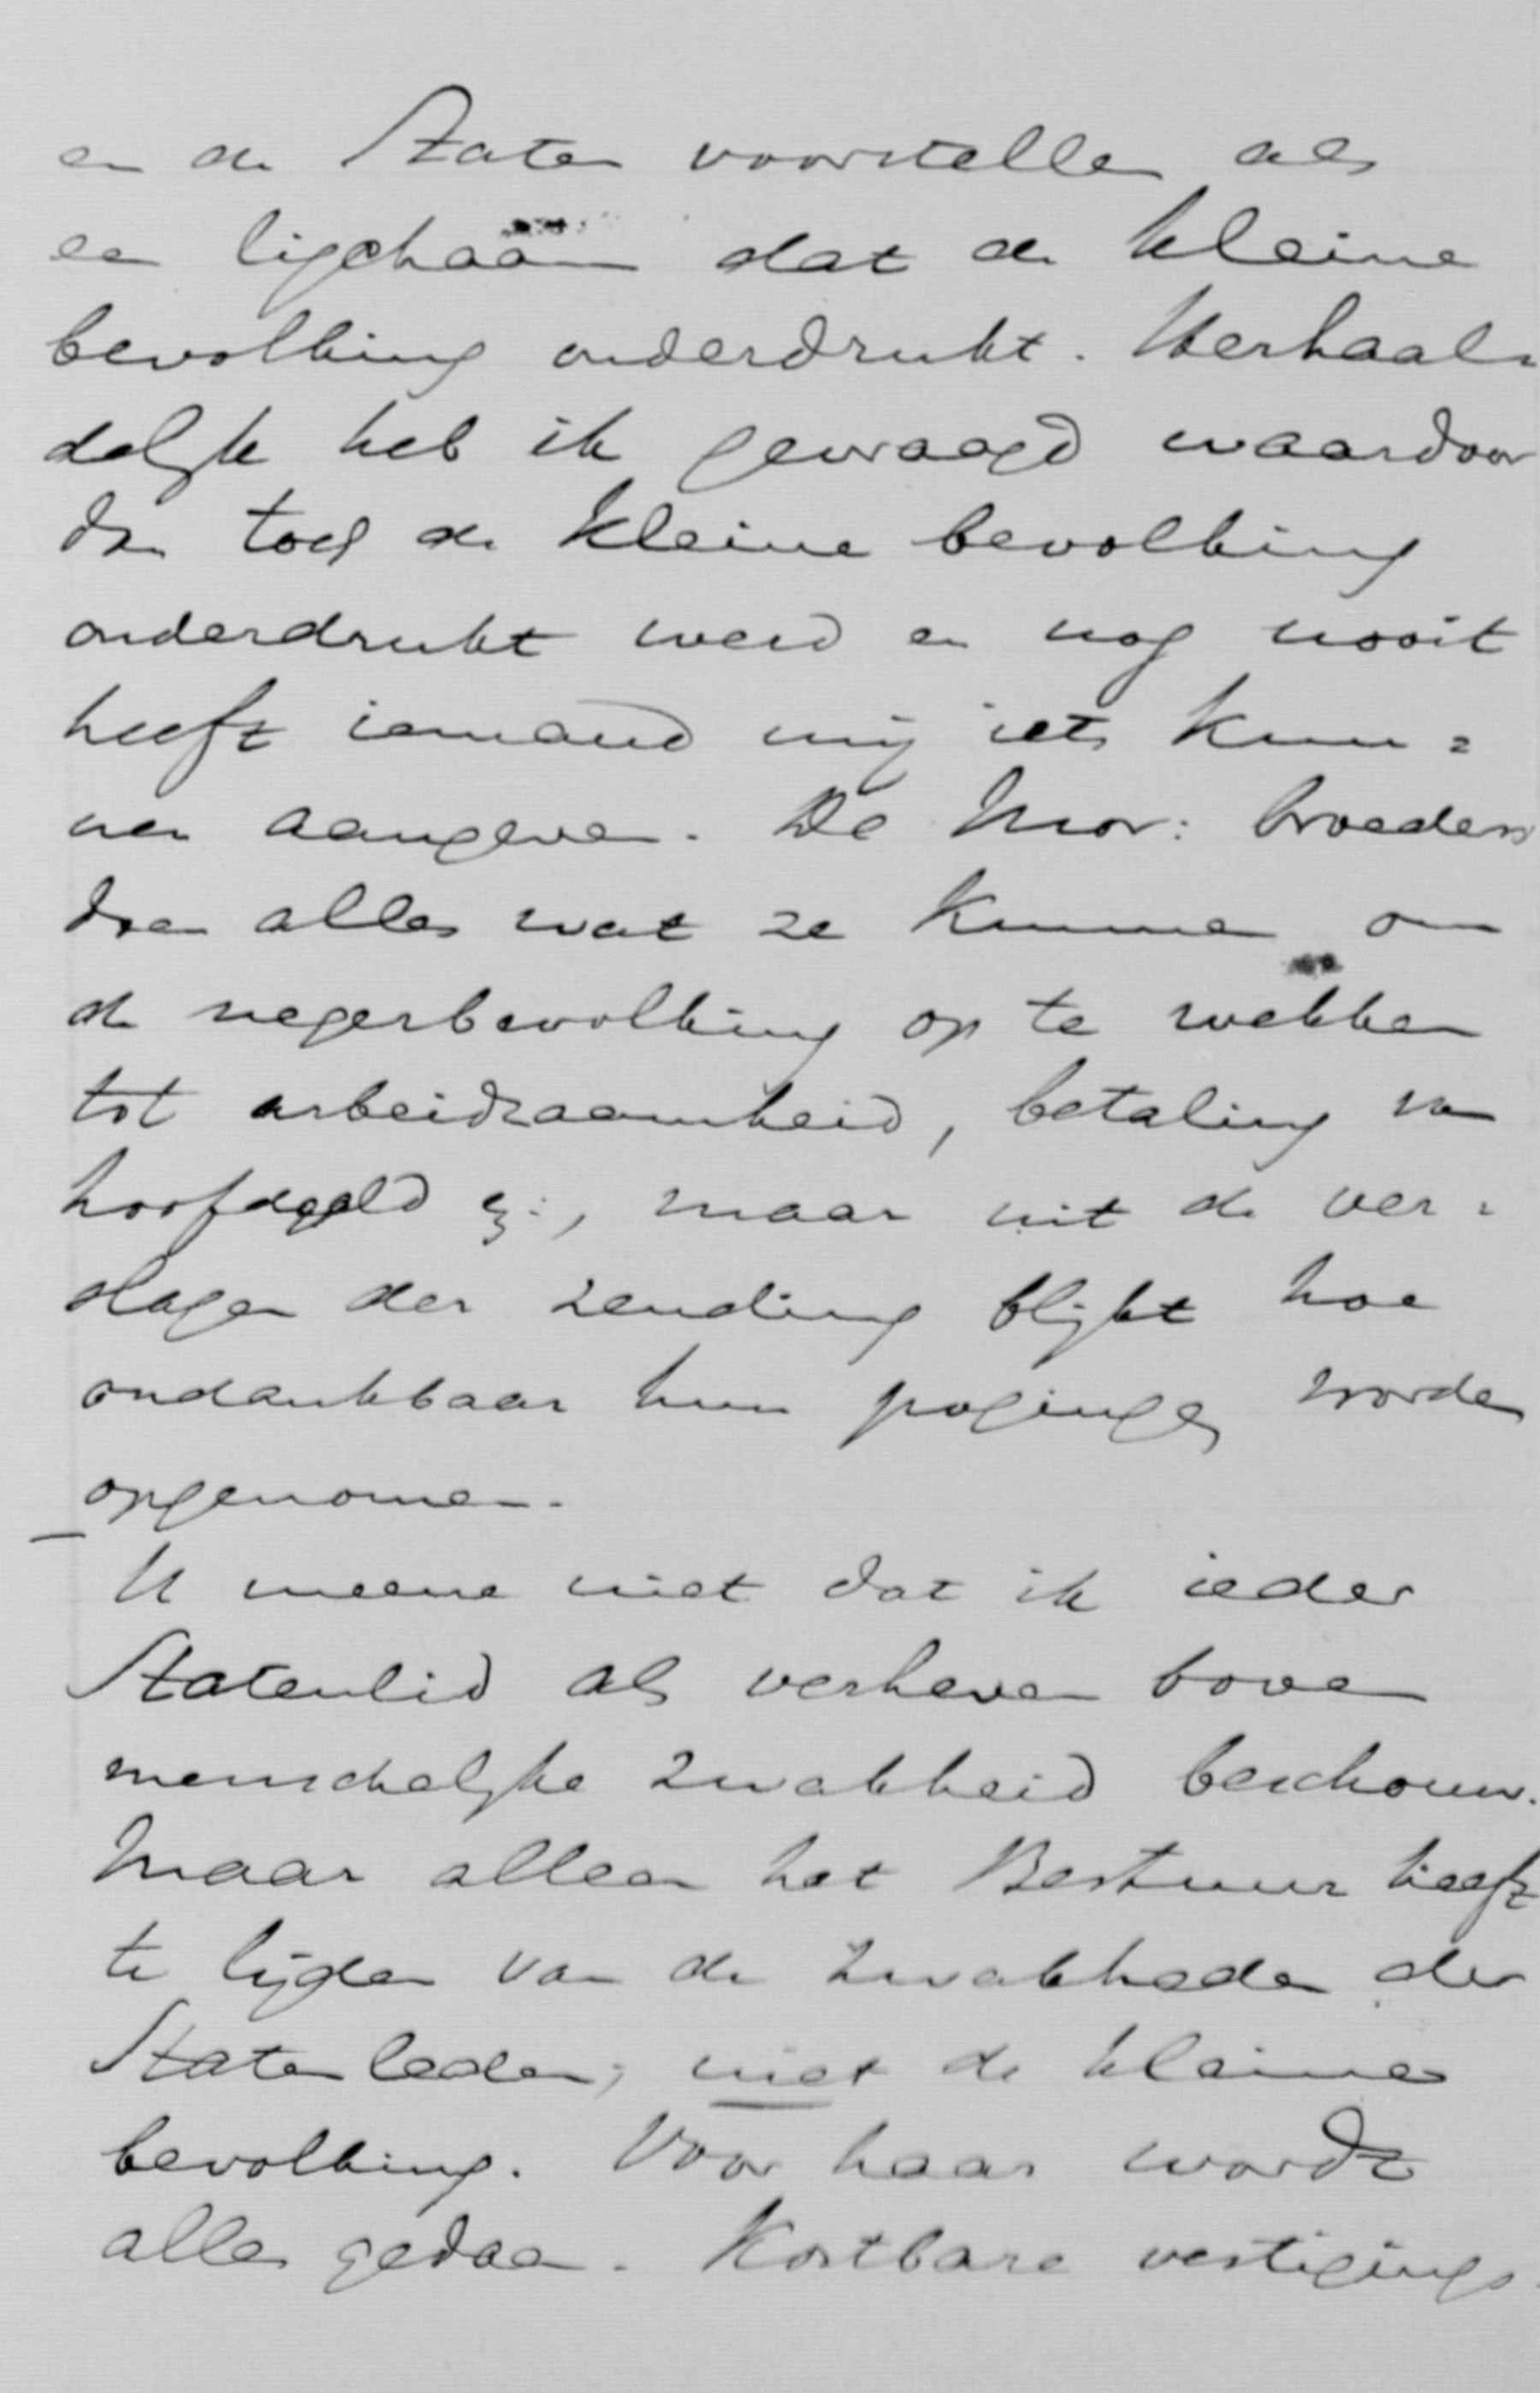 en de Staten voorstellen als
een ligchaam dat de kleine
bevolking onderdrukt. Herhaal=
delijk heb ik gevraagd waardoor
dan toch de kleine bevolking
onderdrukt werd en nog nooit
heeft iemand mij iets kun=
nen aangeven. De Mor: broeders
doen alles wat ze kunnen om
de negerbevolking op te wekken
tot arbeidzaamheid, betaling van
hoofdgeld ez:, maar uit de ver=
slagen der zending blijkt hoe
ondankbaar hun pogingen worden
opgenomen.
U meene niet dat ik ieder
Statenlid als verheven boven
menschelijke zwakheid beschouw.
Maar alleen het Bestuur heeft
te lijden van de zwakheden der
Statenleden; niet de kleine
bevolking. Voor haar wordt
alles gedaan. Kostbare vestigings